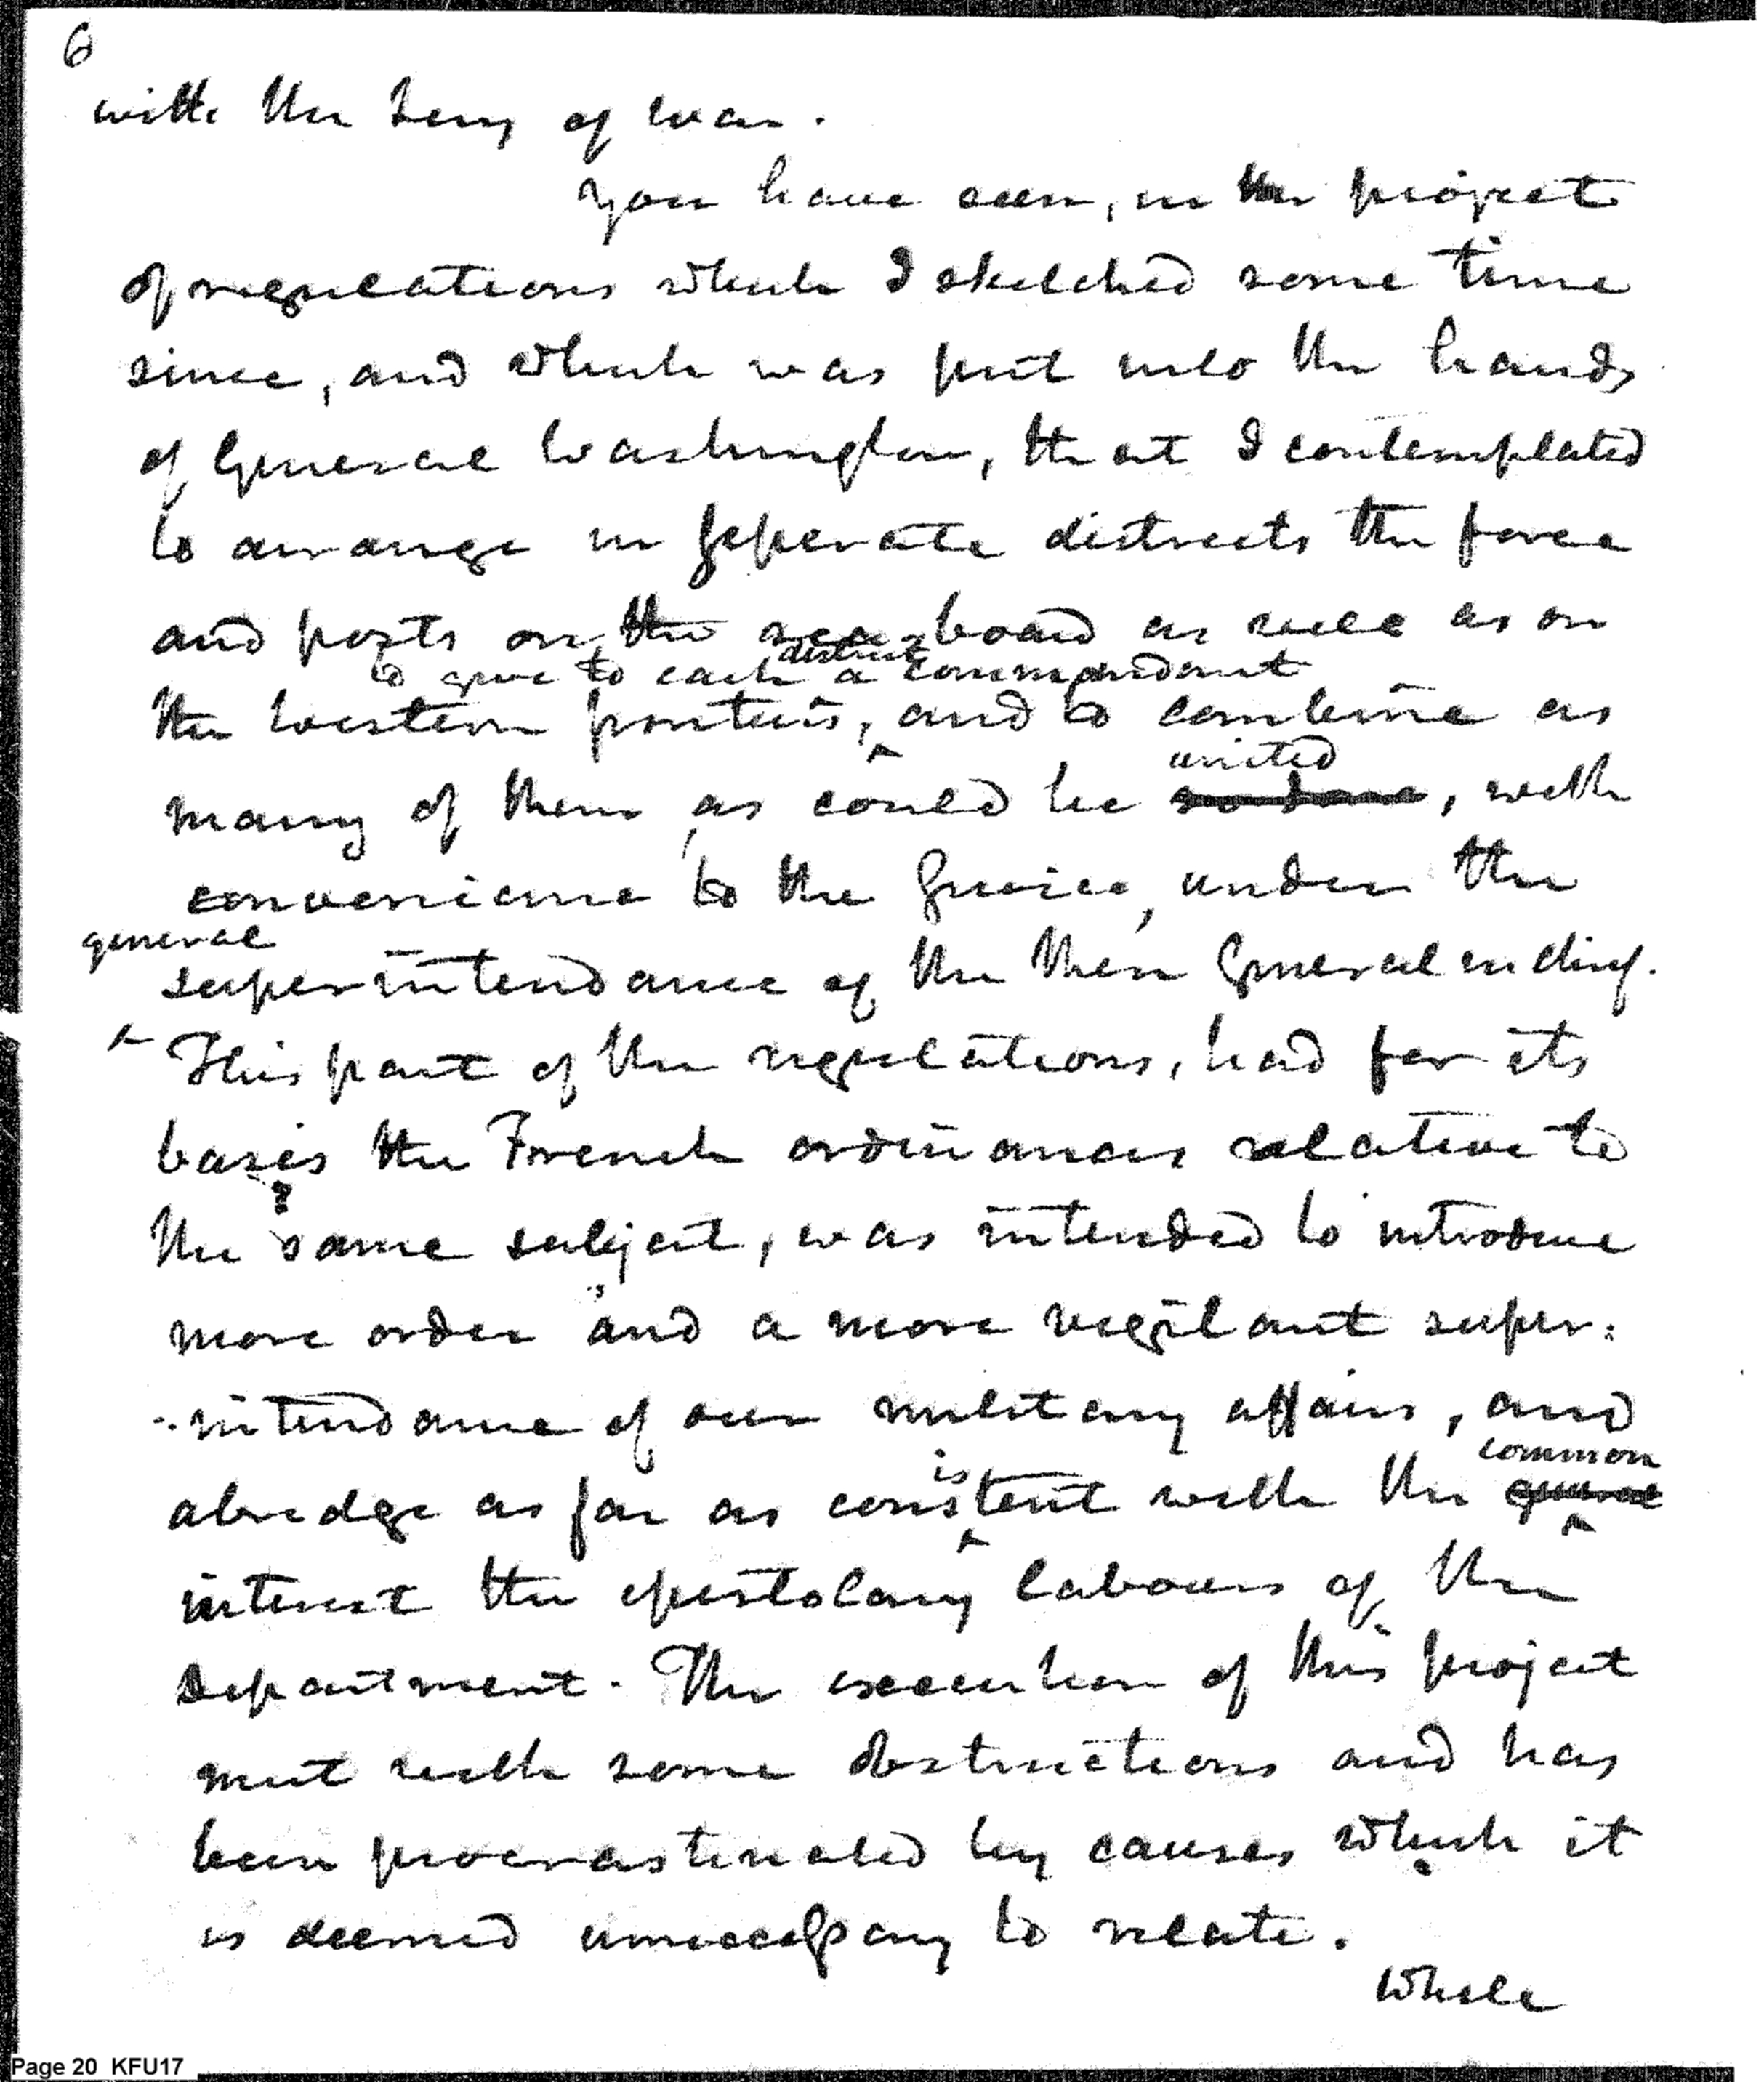 6
with the Secy of war.
You have seen, in the project
of regulations which I sketched some time
since, and which was put into the hands
of General Washington, that I contemplated
to arrange in seperate districts the force
and posts on the sea-board as well as on
to give to each district a commandant
the western frontiers, and to combine as
united
many of them as could be so done, with
convenience to the service, under the
general
superintendance of the then General in chief.
This part of the regulations, had for its
basis the French ordinances relative to
the same subject, was intended to introduce
more order and a more vigilant super:
-intendance of our military affairs, and
common
abridge as far as consistent with the general
interest the epistolary labours of the
Department. The execution of this project
met with some obstructions and has
been procrastinated by causes which it
is deemed unnecessary to relate.
While
Page 20 KFU17